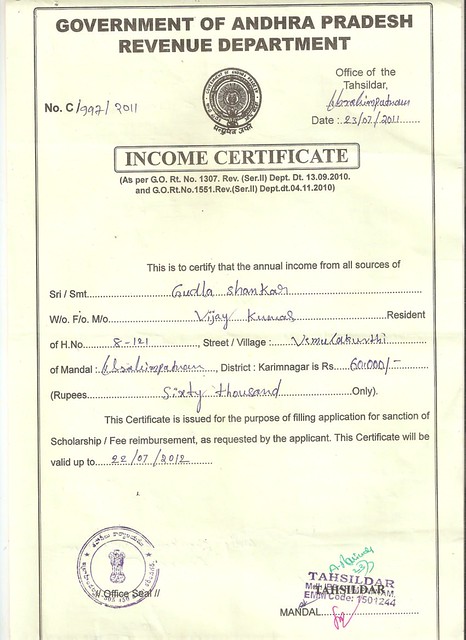 GOVERNMENT OF ANDHRA PRADESH
REVENUE DEPARTMENT
Office of the
Tahsildar,
Ibrahimpatnam
No. C/997/2011
Date : 23/07/2011
INCOME CERTIFICATE
(As per G.O. Rt. No. 1307. Rev. (Ser.II) Dept. Dt. 13.09.2010.
and G.O.Rt.No.1551.Rev.(Ser.II) Dept.dt.04.11.2010)
This is to certify that the annual income from all sources of
Sri / Smt. Gudla Shankar
W/o. F/o. M/o. Vijay Kumar Resident
of H.No. 8-121, Street / Village : Vemulakurthi
of Mandal : Ibrahimpatnam, District : Karimnagar is Rs. 60,000/-
(Rupees Sixty thousand Only).
This Certificate is issued for the purpose of filling application for sanction of
Scholarship / Fee reimbursement, as requested by the applicant. This Certificate will be
valid up to 22/07/2012
// Office Seal //
TAHSILDAR
TAHSILDAR
EMM Code: 1501244
MANDAL